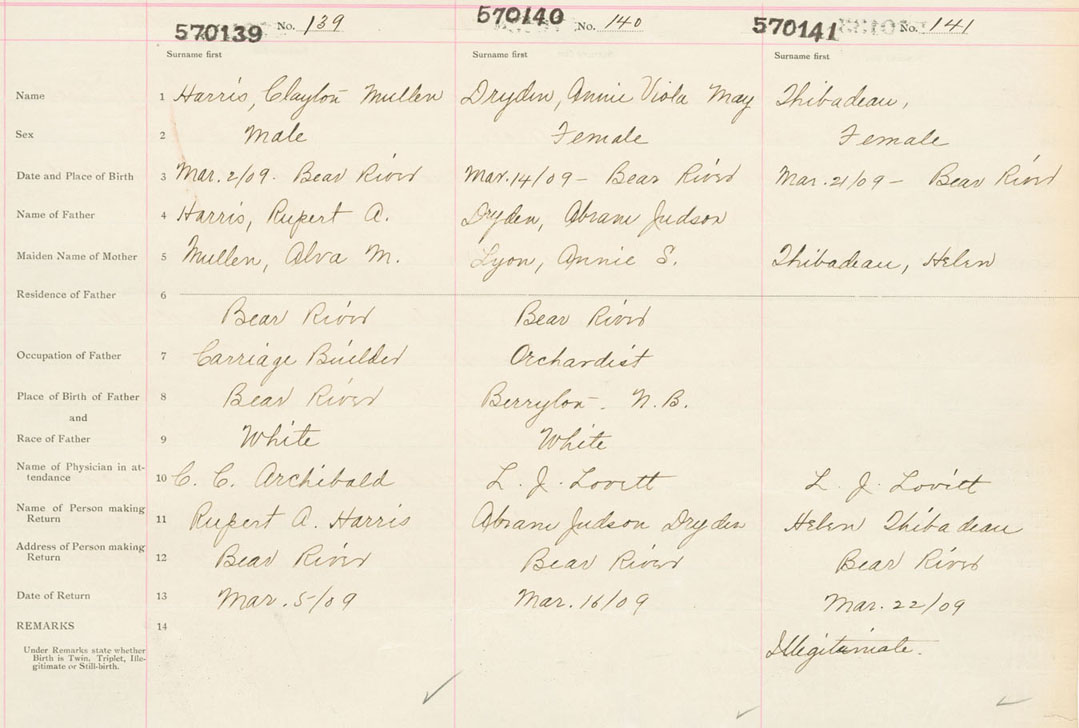 570139 No. 139 570140 No. 140 570141 No. 141
Surname first Surname first Surname first
Name 1 Harris, Clayton Mullen Dryden, Annie Viola May Thibadeau,
Sex 2 Male Female Female
Date and Place of Birth 3 Mar. 2/09. Bear River Mar. 14/09 - Bear River Mar. 21/09 - Bear River
Name of Father 4 Harris, Rupert A. Dryden, Abram Judson
Maiden Name of Mother 5 Mullen, Alva M. Lyon, Annie S. Thibadeau, Helen
Residence of Father 6
Bear River Bear River
Occupation of Father 7 Carriage Builder Orchardist
Place of Birth of Father 8 Bear River Berryton. N.B.
and
Race of Father 9 White White
Name of Physician in at-
tendance 10 C. C. Archibald L. J. Lovitt L. J. Lovitt
Name of Person making
Return 11 Rupert A. Harris Abram Judson Dryden Helen Thibadeau
Address of Person making
Return 12 Bear River Bear River Bear River
Date of Return 13 Mar. 5/09 Mar. 16/09 Mar. 22/09
REMARKS 14
Under Remarks state whether
Birth is Twin, Triplet, Ille-
gitimate or Still-birth.
Illegitimate.